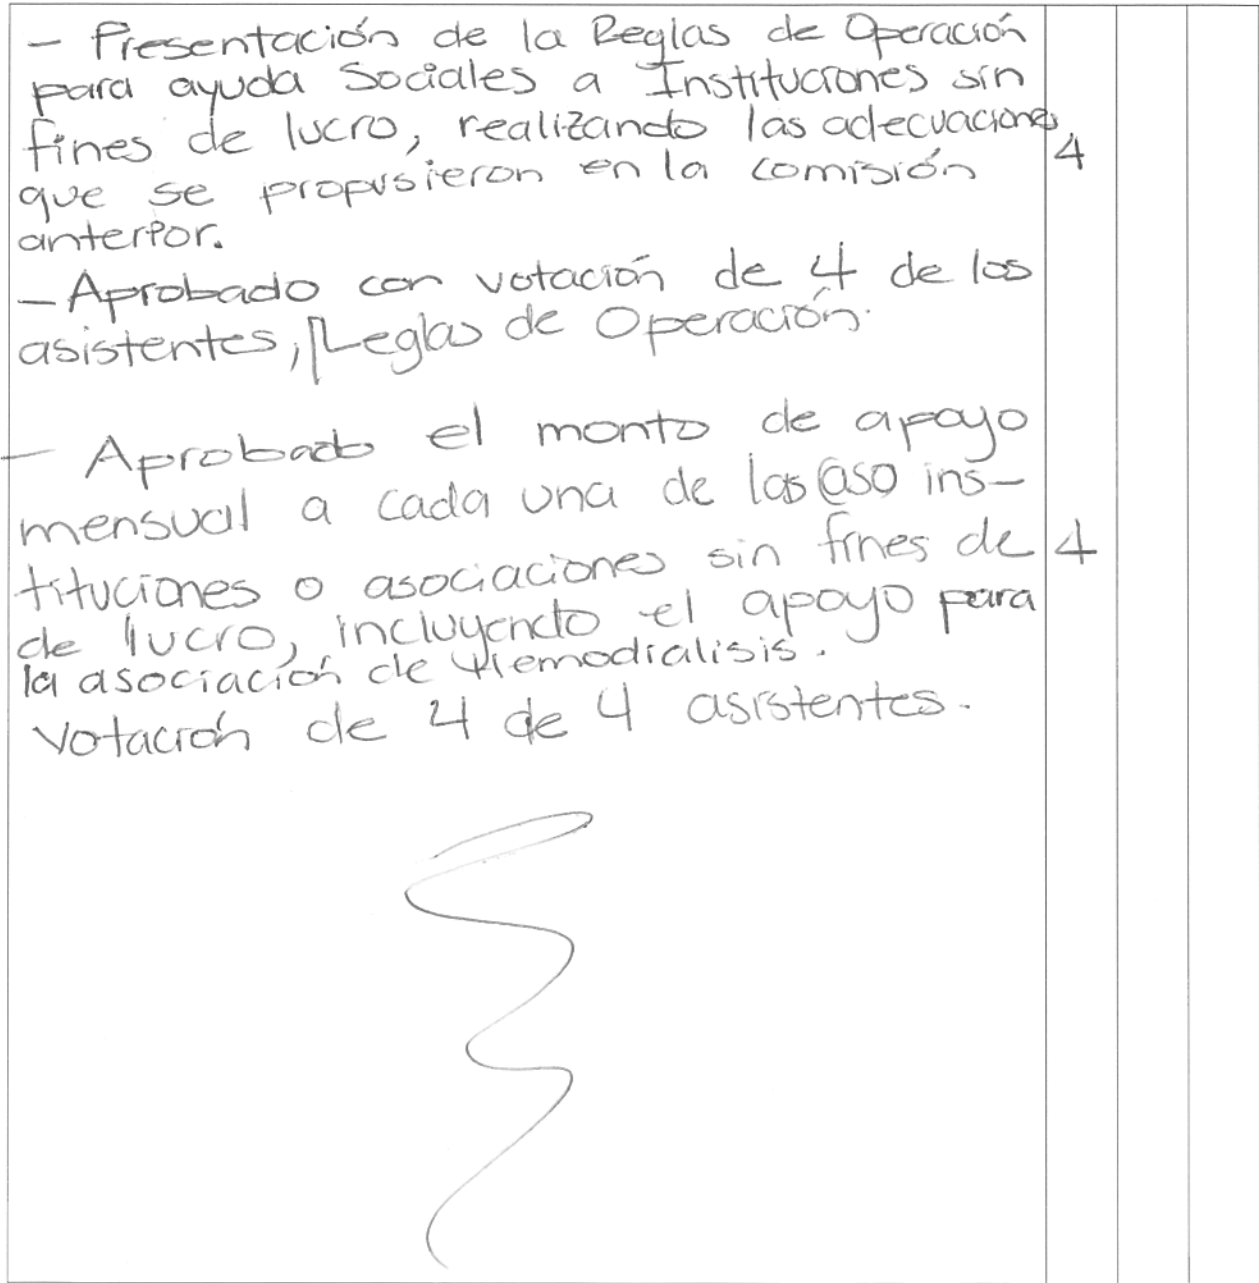 - Presentación de la Reglas de Operación
para ayuda Sociales a Instituciones sin
fines de lucro, realizando las adecuaciones
que se propusieron en la comisión 4
anterior.
- Aprobado con votación de 4 de los
asistentes, Reglas de Operación.
- Aprobado el monto de apoyo
mensual a cada una de las aso ins-
tituciones o asociaciones sin fines de 4
de lucro, incluyendo el apoyo para
la asociación de Hemodialisis.
Votación de 4 de 4 asistentes.